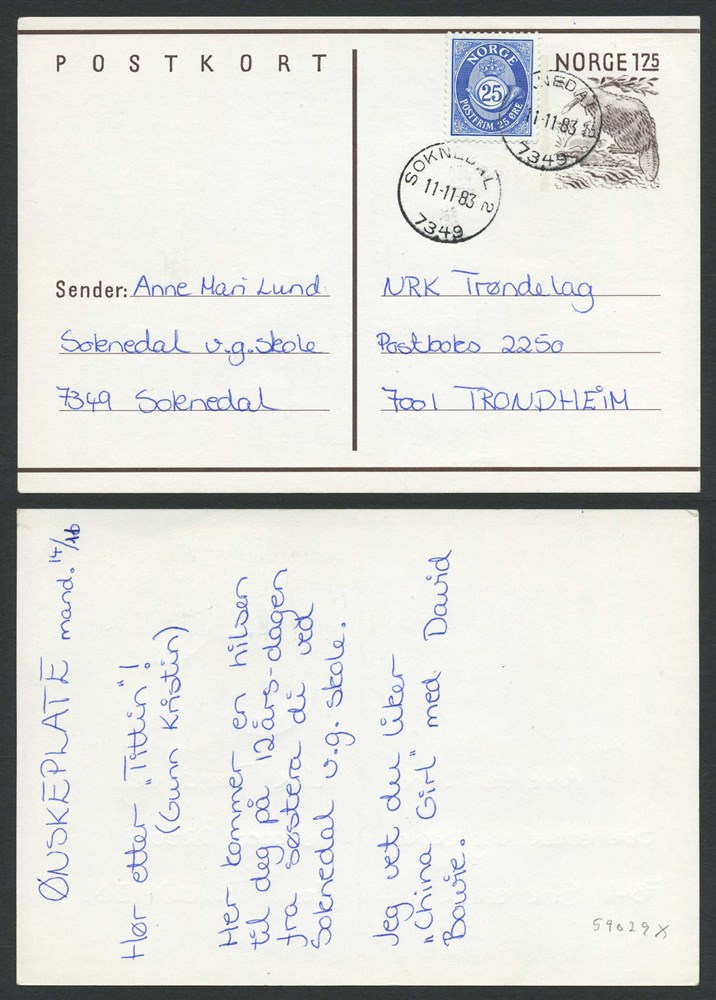 POSTKORT
NORGE
25
POSTFRIM. 25 ØRE
NORGE 175
SOKNEDAL 2
11-11-83
7349
NEDAL
11-11-83
7349
Sender: Anne Mari Lund
Soknedal v.g. skole
7349 Soknedal
NRK Trøndelag
Postboks 2250
7001 TRONDHEIM
ØNSKEPLATE mand. 14/
Hør etter "Tittin"!
(Gunn Kristin)
Her kommer en hilsen
til deg på 12 års-dagen
fra søstera di ved
Soknedal v.g. skole.
Jeg vet du liker
"China Girl" med David
Bowie.
59029X